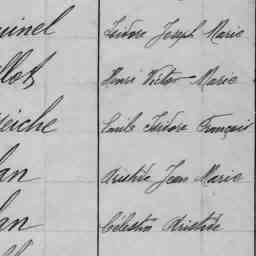 uinel Isidore Joseph Marie
llot Henri Victor Marie
eiche Emile Isidore François
an Aristide Jean Marie
an Célestin Aristide